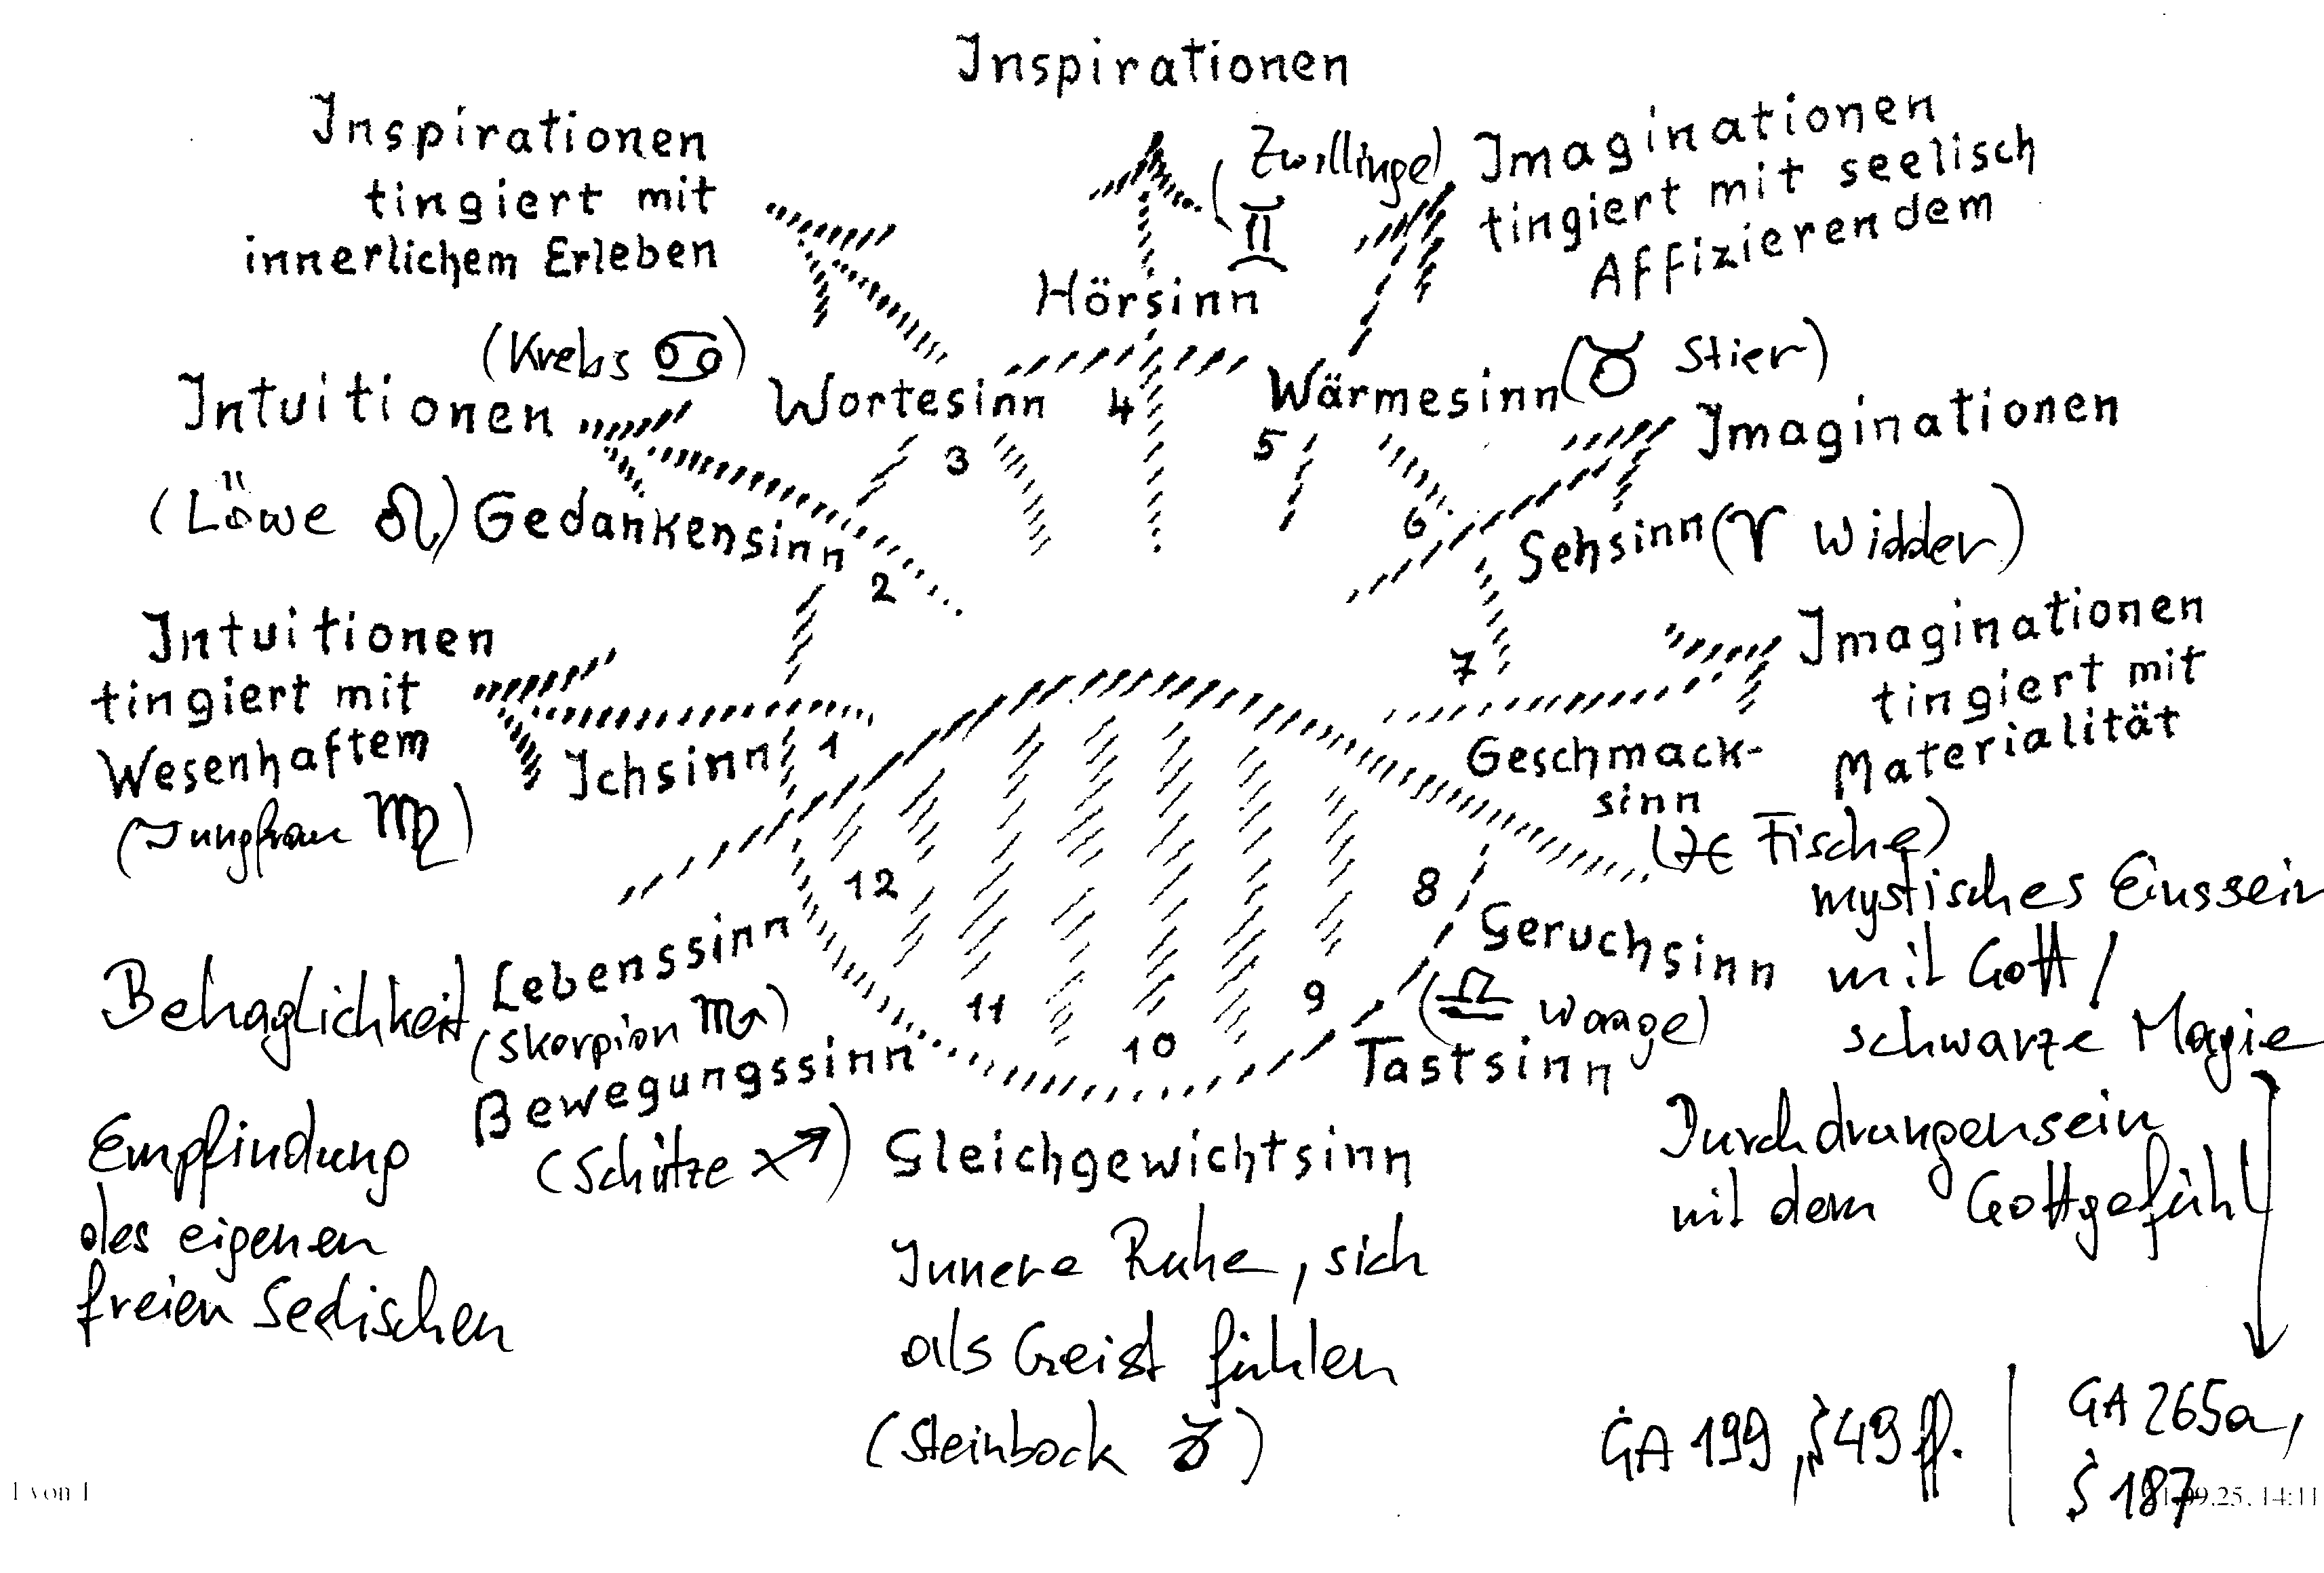 Inspirationen
Inspirationen
tingiert mit
innerlichem Erleben
(Zwillinge)
♊
Imaginationen
tingiert mit seelisch
Affizierendem
Hörsinn
(Krebs ♋)
Wortesinn
3
4
Wärmesinn (♉ Stier)
5
Intuitionen
(Löwe ♌) Gedankensinn
2
Imaginationen
6
Sehsinn (♈ Widder)
Intuitionen
tingiert mit
Wesenhaftem
(Jungfrau ♍)
Ichsinn
1
7
Imaginationen
tingiert mit
Materialität
Geschmack-
sinn
(♓ Fische)
12
8
Geruchsinn
(♎ Waage)
mystisches Einssein
mit Gott /
schwarze Magie
Behaglichkeit
Lebenssinn
(Skorpion ♏)
11
10
9
Bewegungssinn
(Schütze ♐)
Tastsinn
Empfindung
des eigenen
freien Seelischen
Gleichgewichtsinn
Innere Ruhe, sich
als Geist fühlen
(Steinbock ♑)
Durchdrungensein
mit dem Gottgefühl
GA 199, S 49 ff.
GA 265a,
S 187
1 von 1
09.25, 14:11